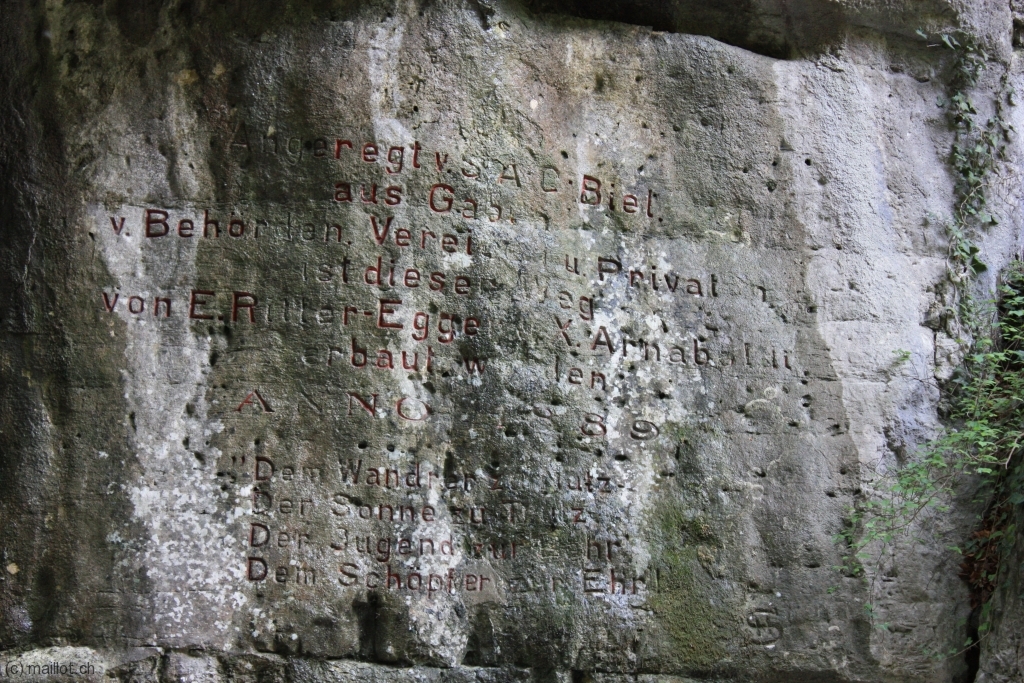 Angeregt v. SAC. Biel.
aus Gab.
v. Behörden, Verei. Privat
ist diese Weg
von E. Ritter-Egger X. Arnaboldi
erbaut worden.
ANNO 1889
"Dem Wandrer z. Nutz
Der Sonne zu Trutz
Der Jugend zur Lehr'
Dem Schöpfer zur Ehr!
(c) maillot.ch